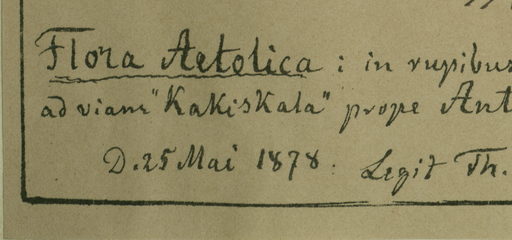 Flora Aetolica : in rupibus
ad viam "Kakiskala" prope Ant
D. 25 Mai 1878. Legit Th.